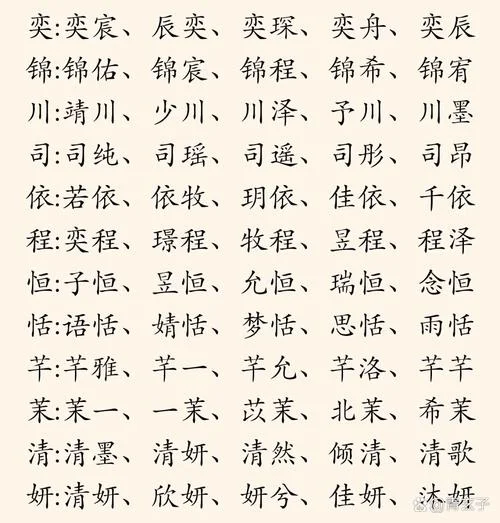 奕:奕宸、辰奕、奕琛、奕舟、奕辰
锦:锦佑、锦宸、锦程、锦希、锦宥
川:靖川、少川、川泽、予川、川墨
司:司纯、司瑶、司遥、司彤、司昂
依:若依、依牧、玥依、佳依、千依
程:奕程、璟程、牧程、昱程、程泽
恒:子恒、昱恒、允恒、瑞恒、念恒
恬:语恬、婧恬、梦恬、思恬、雨恬
芊:芊雅、芊一、芊允、芊洛、芊芊
茉:茉一、一茉、苡茉、北茉、希茉
清:清墨、清妍、清然、倾清、清歌
妍:清妍、欣妍、妍兮、佳妍、沐妍